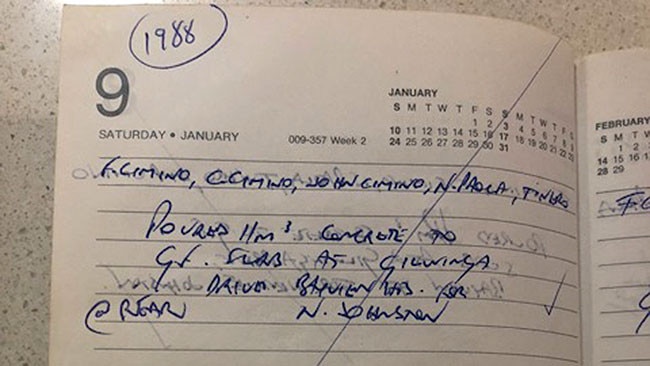 1988
9
SATURDAY • JANUARY
009-357 Week 2
JANUARY
S M T W T F S S M T W T F S
1 2 3 4 5 6 7 8 9
10 11 12 13 14 15 16 17 18 19 20 21 22 23
24 25 26 27 28 29 30 31
FEBRUARY
S M T W
1 2
14 15 16
28 29
F. CIMINO, C. CIMINO, JOHN CIMINO, N. PAOLA, TINDARO
POURED 11m³ CONCRETE TO
GF. SLAB AT GILWINGA
DRIVE BAYVIEW HTS. FOR
@ REAR N. JOHNSTON